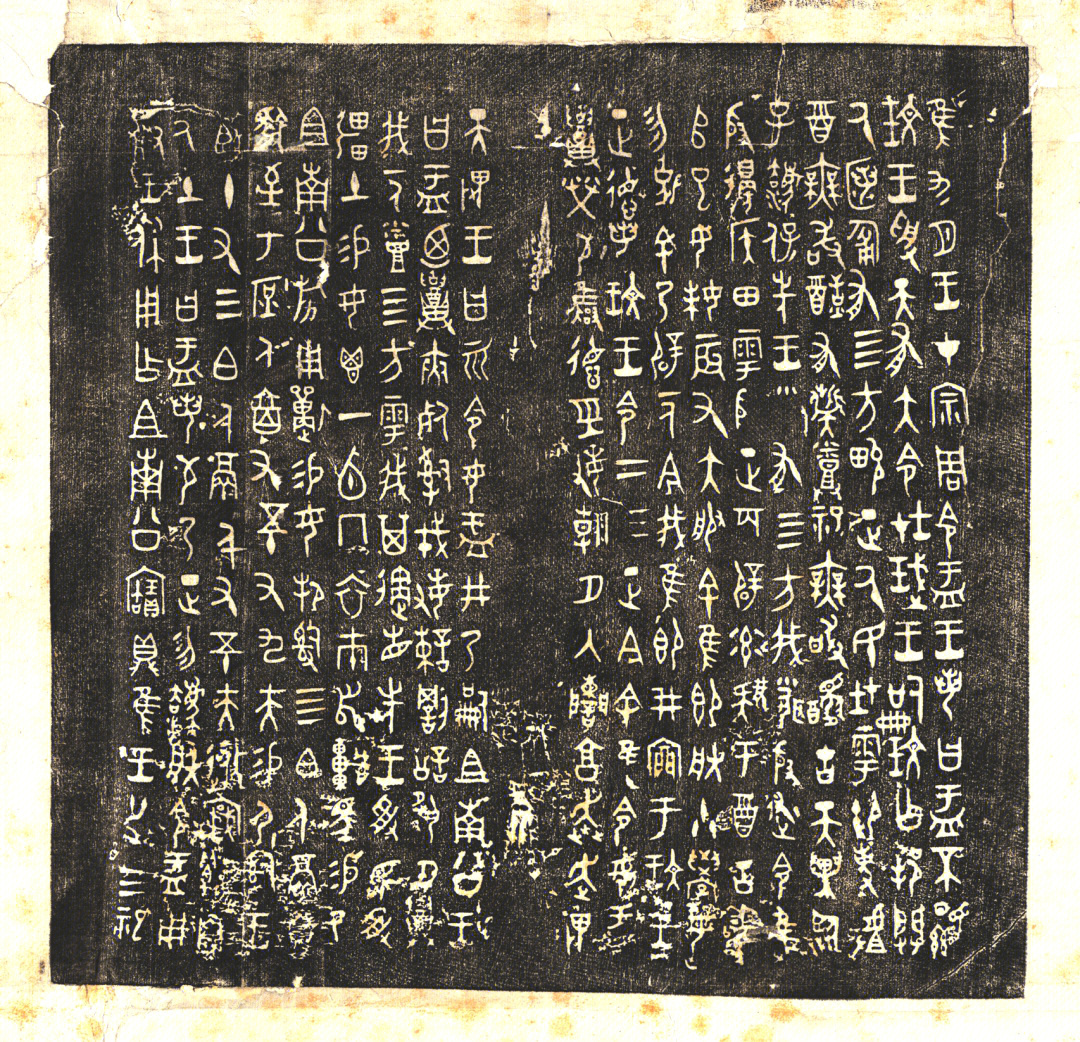 隹九月王才宗周令盂王若曰盂不顯
玟王受天有大令在珷王嗣玟乍邦闢
氒匿匍有四方畯正氒民在𩁹御事𠭯
酉無敢酖有祡烝祀無敢醻古天異臨
子灋保先王有四方我聞殷述令隹
殷邊侯田𩁹殷正百辟率肄于酉古喪
𠂤巳女妹辰又大服余隹即朕小學女
勿𠒇余乃辟一人今我隹即井㐭于玟王
正德若玟王令二三正今余隹令女盂
召榮敬雝德巠敏朝夕入讕享奔走畏
天畏王曰𠀠令女盂井乃嗣且南公王
曰盂迺召夾死司戎敏諫罰訟夙夕召
我一人烝四方𩁹我其遹省先王受民受
疆土易女鬯一卣冂衣巿舄車馬易乃
且南公旂用狩易女邦司四白人鬲自
馭至于庶人六百又五十又九夫易尸司
王臣十又三白人鬲千又五十夫遷
自氒土王曰盂若敬乃正勿灋朕令盂用
對王休用乍且南公寶鼎隹王廿又三祀